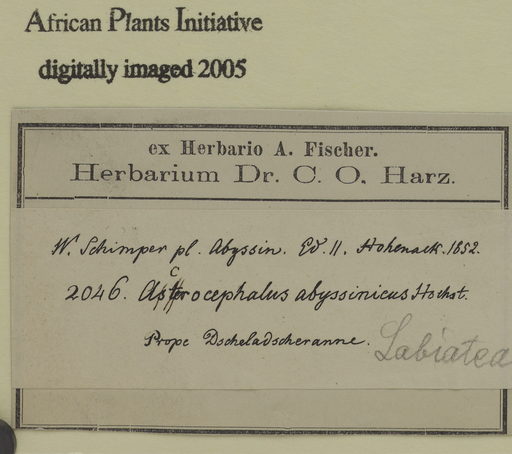 African Plants Initiative
digitally imaged 2005
ex Herbario A. Fischer.
Herbarium Dr. C. O. Harz.
W. Schimper pl. Abyssin. Ed. II. Hohenack. 1852.
2046. Acrocephalus abyssinicus Hochst.
Prope Dscheladscheranne.
Labiatea